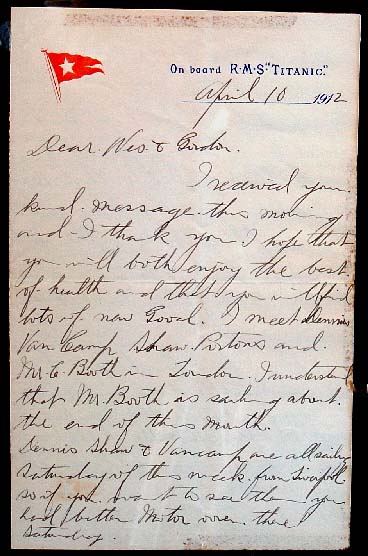 On board R·M·S·"TITANIC."
April 10 1912
Dear Wes & Gordon.
I received your
kind message this morning
and I thank you I hope that
you will both enjoy the best
of health and that you will find
lots of new Good. I meet Dennis
Van Camp Shaw and
Mr & Booth in London. I understand
that Mr. Booth is sailing about
the end of this month.
Dennis Shaw & Vancamp are all sailing
Saturday of this week from Liverpool
so if you want to see them you
had better Motor over there
Saturday.